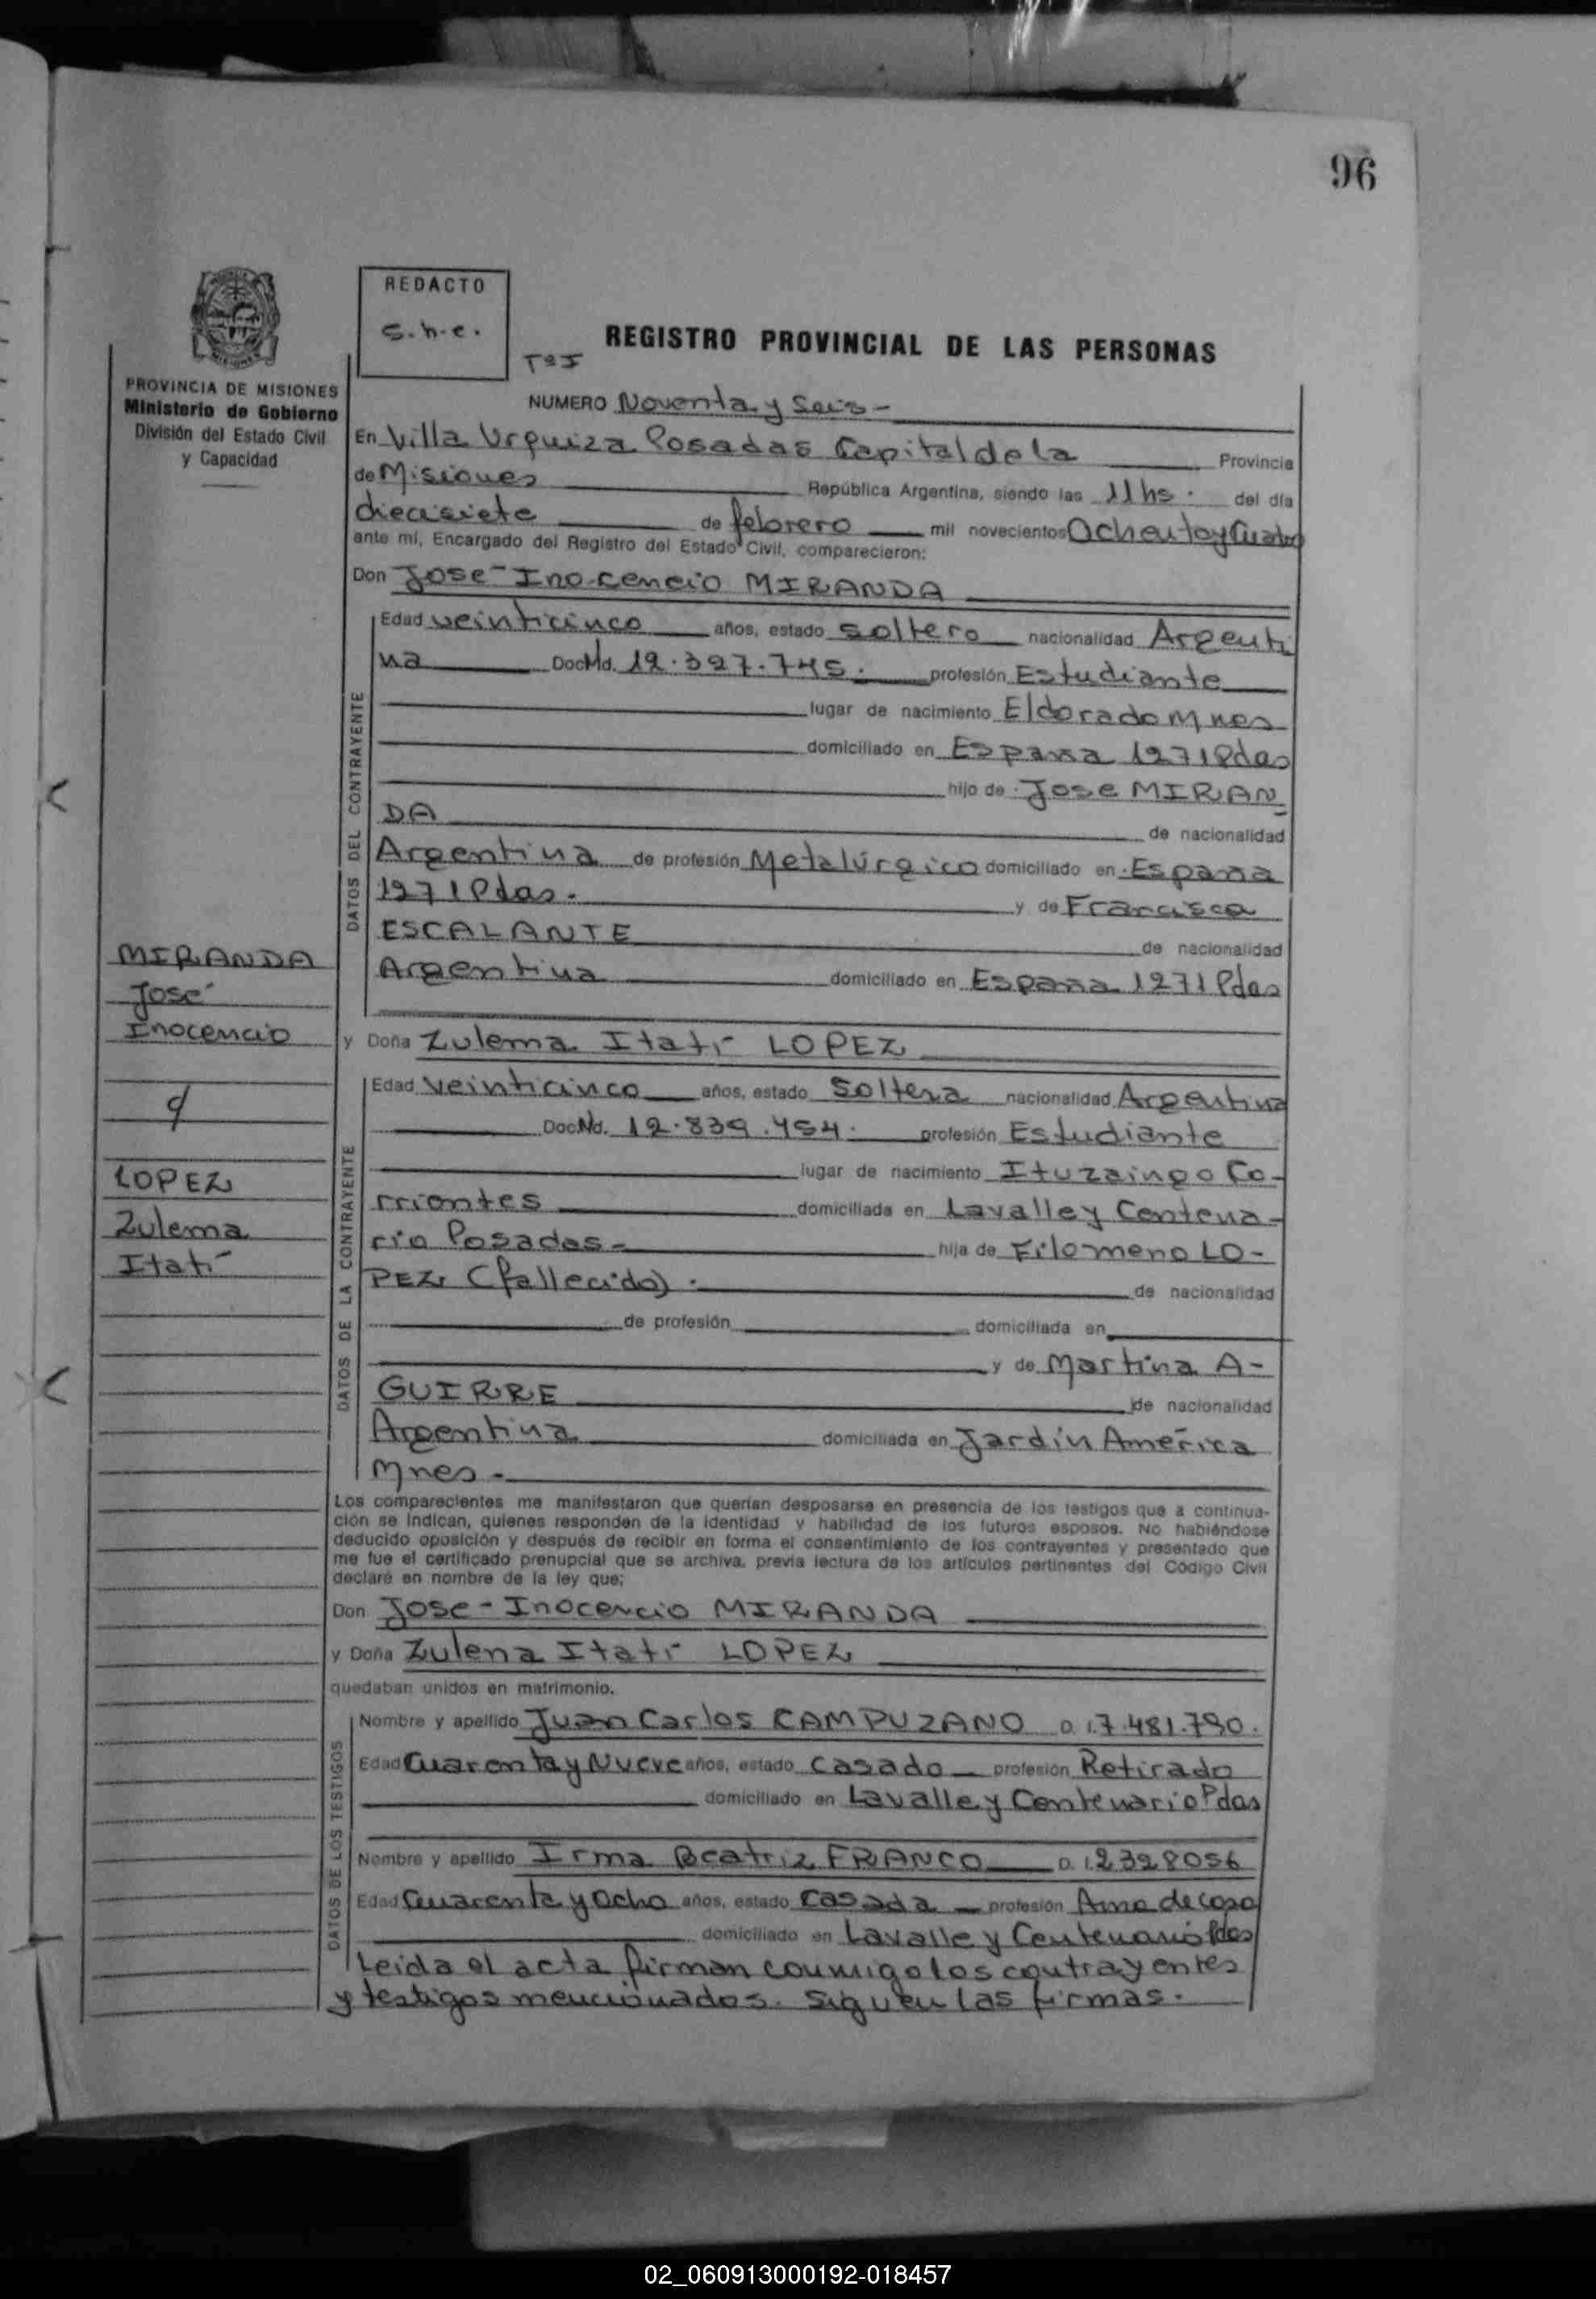 96
REDACTO
S.h.e.
REGISTRO PROVINCIAL DE LAS PERSONAS
PROVINCIA DE MISIONES
Ministerio de Gobierno
División del Estado Civil
y Capacidad
Tº I
NUMERO Noventa y Seis-
En Villa Urquiza Posadas Capital de la Provincia
de Misiones República Argentina, siendo las 11 hs. del día
diecisiete de febrero mil novecientos Ochenta y Cuatro
ante mí, Encargado del Registro del Estado Civil, comparecieron:
Don José Inocencio MIRANDA
DATOS DEL CONTRAYENTE
Edad veinticinco años, estado soltero nacionalidad Argenti
na Doc Nd. 12.327.745. profesión Estudiante
lugar de nacimiento Eldorado Mnes
domiciliado en España 1271 Pdas
hijo de Jose MIRAN
DA de nacionalidad
Argentina de profesión Metalúrgico domiciliado en España
1271 Pdas. y de Francisca
ESCALANTE de nacionalidad
Argentina domiciliado en España 1271 Pdas
MIRANDA
José
Inocencio
LOPEZ
Zulema
Itatí
y Doña Zulema Itatí LOPEZ
DATOS DE LA CONTRAYENTE
Edad veinticinco años, estado Soltera nacionalidad Argentina
Doc Nd. 12.839.454. profesión Estudiante
lugar de nacimiento Ituzaingo Co-
rrientes domiciliada en Lavalle y Centena-
rio Posadas- hija de Filomeno LO-
PEZ (fallecido). de nacionalidad
de profesión domiciliada en
y de Martina A-
GUIRRE de nacionalidad
Argentina domiciliada en Jardín América
Mnes.
Los comparecientes me manifestaron que querían desposarse en presencia de los testigos que a continua-
ción se indican, quienes responden de la identidad y habilidad de los futuros esposos. No habiéndose
deducido oposición y después de recibir en forma el consentimiento de los contrayentes y presentado que
me fue el certificado prenupcial que se archiva, previa lectura de los artículos pertinentes del Código Civil
declaré en nombre de la ley que:
Don Jose-Inocencio MIRANDA
y Doña Zulena Itatí LOPEZ
quedaban unidos en matrimonio.
DATOS DE LOS TESTIGOS
Nombre y apellido Juan Carlos CAMPUZANO D. I. 7.481.790.
Edad Cuarenta y Nueve años, estado Casado profesión Retirado
domiciliado en Lavalle y Centenario Pdas
Nombre y apellido Irma Beatriz FRANCO D. I. 2328056
Edad Cuarenta y Ocho años, estado Casada profesión Ama de casa
domiciliado en Lavalle y Centenario Pdas
Leida el acta firman conmigo los contrayentes
y testigos mencionados. Siguen las firmas.
02_060913000192-018457